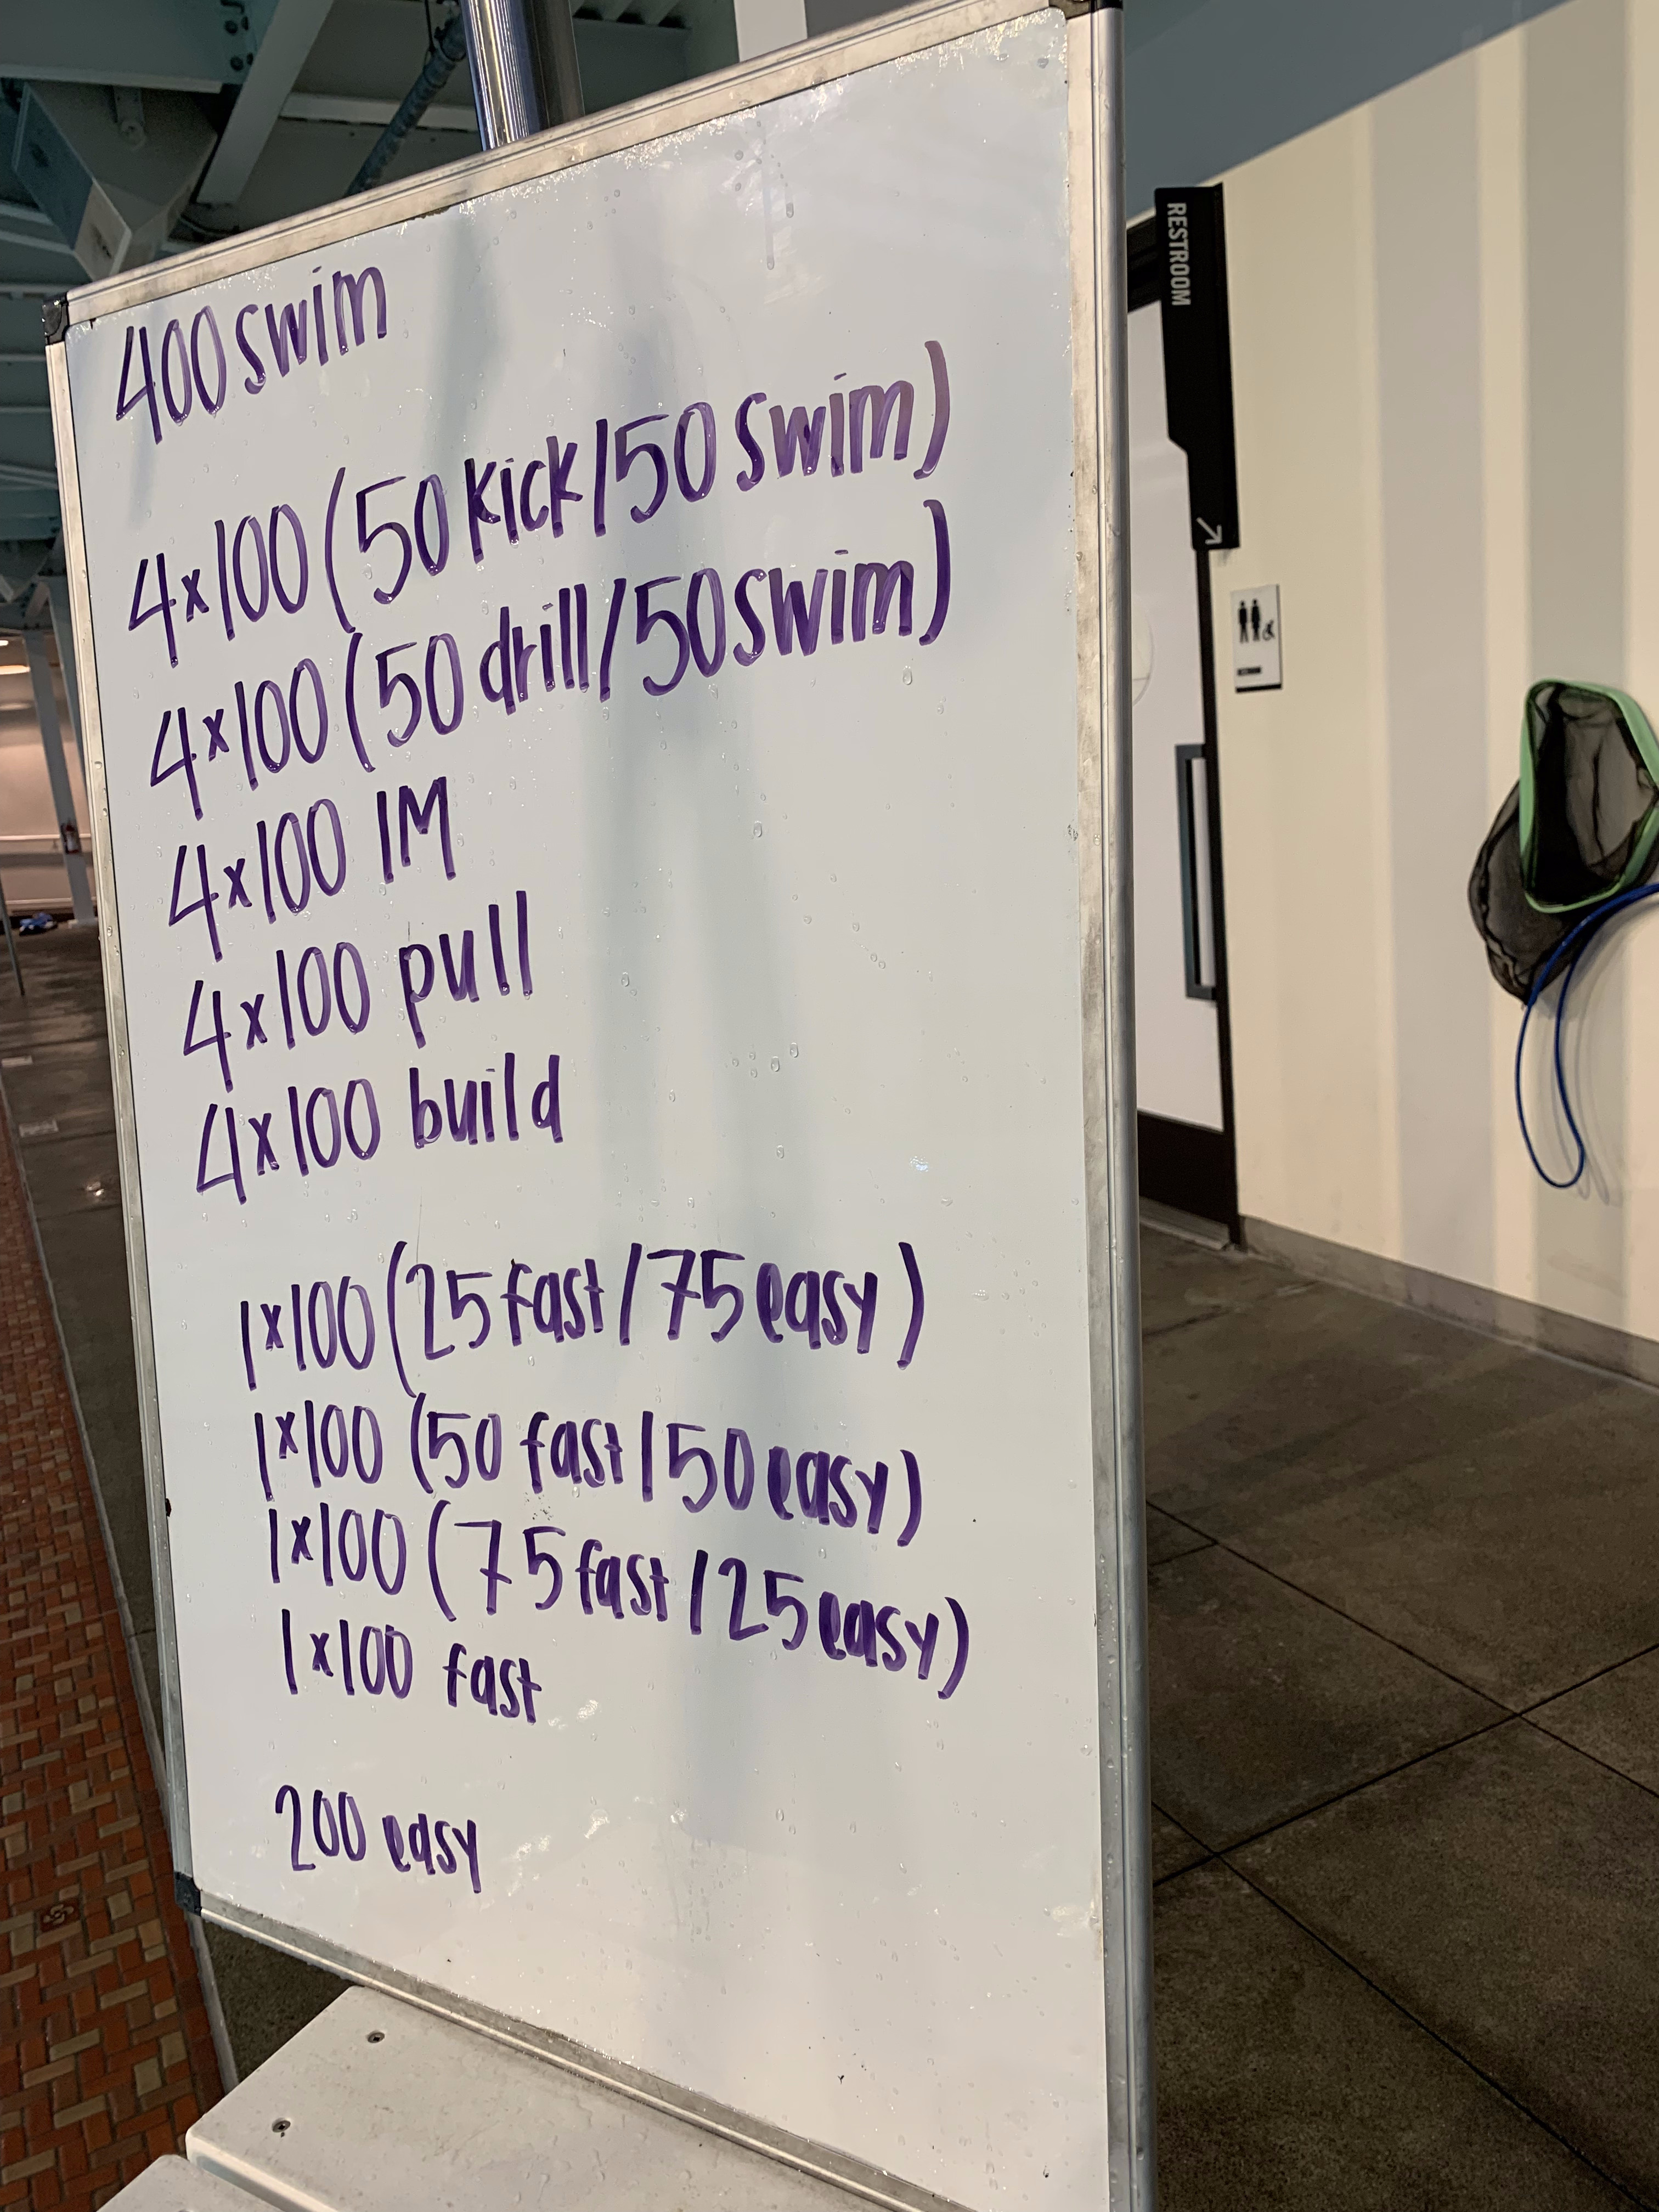 400 swim
4x100 (50 kick/50 swim)
4x100 (50 drill/50 swim)
4x100 IM
4x100 pull
4x100 build
1x100 (25 fast/75 easy)
1x100 (50 fast/50 easy)
1x100 (75 fast/25 easy)
1x100 fast
200 easy
RESTROOM